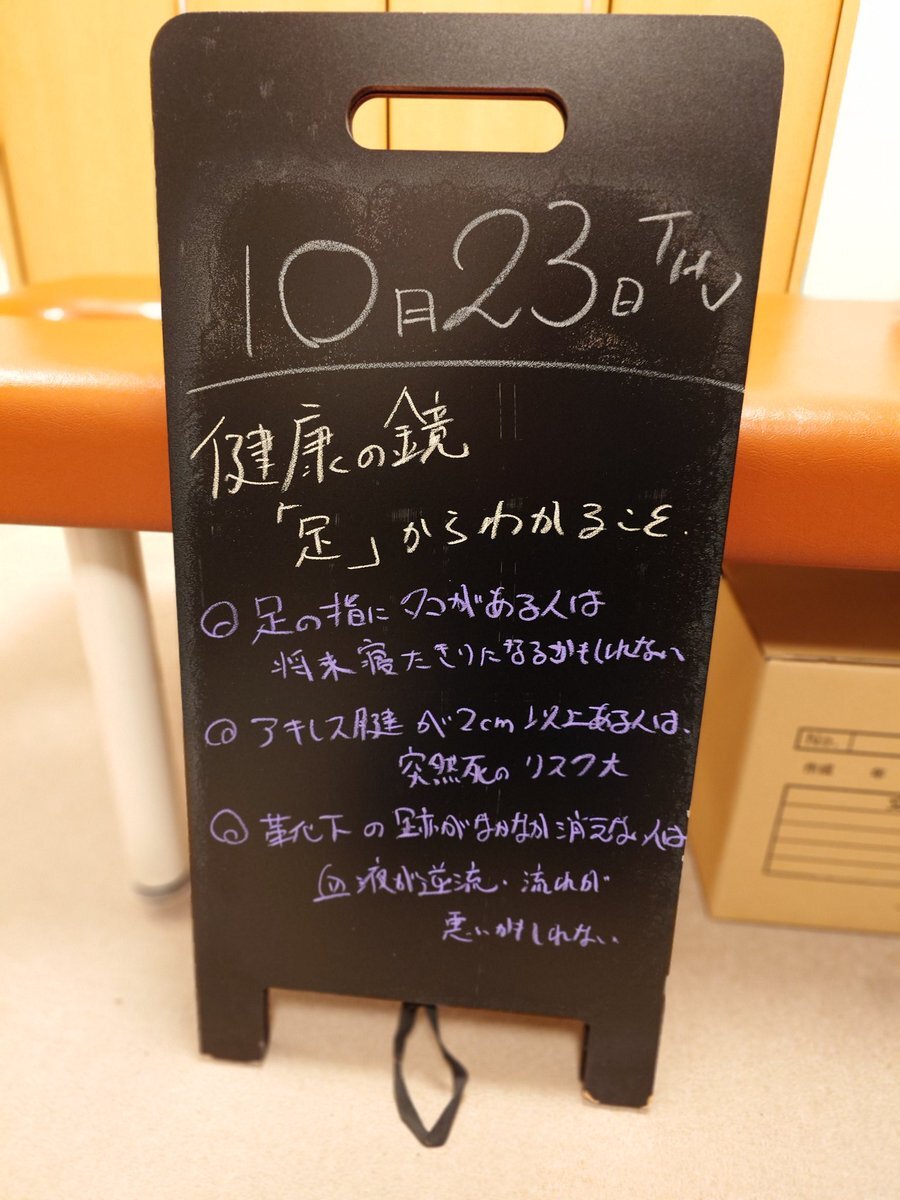 10月23日 THU
健康の鏡
「足」からわかること.
◎ 足の指に タコがある人は
将来寝たきりになるかもしれない
◎ アキレス腱 が2cm 以上ある人は、
突然死の リスク大
◎ 靴下 の 跡がなかなか消えない人は
血液が逆流・流れが
悪いかもしれない
No.